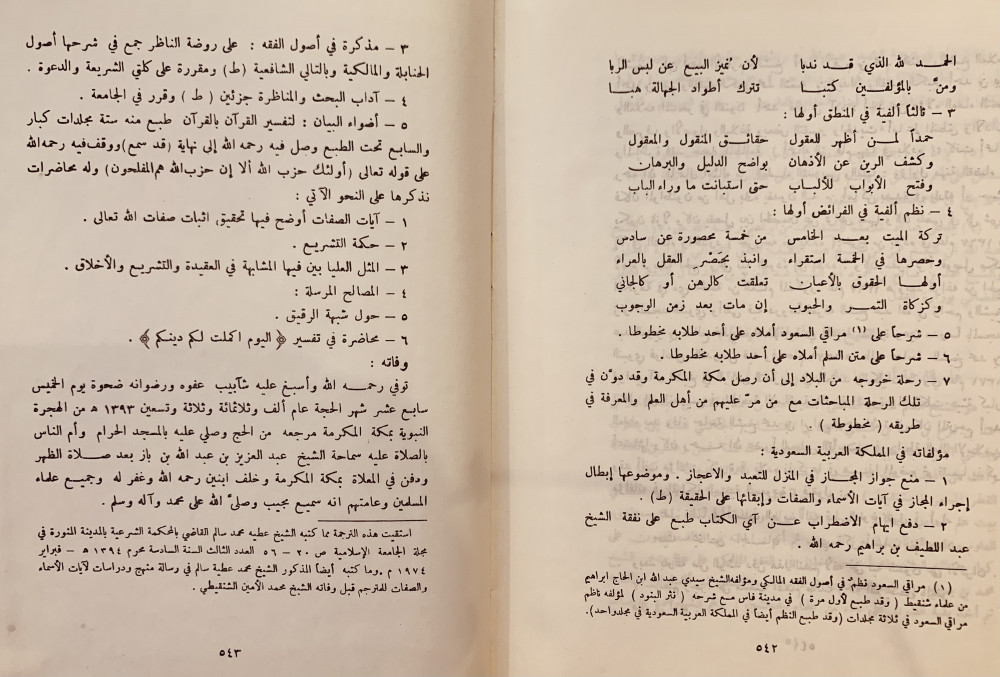 الحمد لله الذي قد ندبا لأن نميز البيع عن لبس الربا
ومنّ بالمؤلفين كتبا تترك أطواد الجهالة هبا
٣ – ثالثاً ألفية في المنطق أولها :
حمداً لمن أظهر للعقول حقائق المنقول والمعقول
وكشف الرين عن الأذهان بواضح الدليل والبرهان
وفتح الأبواب للألباب حتى استبانت ما وراء الباب
٤ – نظم ألفية في الفرائض أولها :
تركة الميت بعد الخامس من خمسة محصورة عن سادس
وحصرها في الخمسة استقراء وانبذ بحتصر العقل بالعراء
أولها الحقوق بالأعيان تعلقت كالرهن أو كالجاني
وكزكاة التمر والحبوب إن مات بعد زمن الوجوب
٥ – شرحاً على (١) مراقي السعود أملاه على أحد طلابه مخطوطا .
٦ – شرحاً على متن السلم أملاه على أحد طلابه مخطوطا .
٧ – رحلة خروجه من البلاد إلى أن رصل مكة المكرمة وقد دوّن في
تلك الرحلة المباحثات مع من مرّ عليهم من أهل العلم والمعرفة في
طريقه ( مخطوطة ) .
مؤلفاته في المملكة العربية السعودية :
١ – منع جواز المجاز في المنزل للتعبد والاعجاز . وموضوعها إبطال
إجراء المجاز في آيات الأسماء والصفات وإبقائها على الحقيقة (ط) .
٢ – دفع ايهام الاضطراب عن آي الكتاب طبع على نفقة الشيخ
عبد اللطيف بن براهيم رحمه الله .
(١) مراقي السعود نظمٌ في أصول الفقه المالكي ومؤلفه الشيخ سيدي عبد الله ابن الحاج ابراهيم
من علماء شنقيط ( وقد طبع لأول مرة ) في مدينة فاس مع شرحه ( نثر البنود ) لمؤلفه ناظم
مراقي السعود في ثلاثة مجلدات (وقد طبع النظم أيضاً في المملكة العربية السعودية في مجلد واحد).
٥٤٢
٣ – مذكرة في أصول الفقه : على روضة الناظر جمع في شرحها أصول
الحنابلة والمالكية وبالتالي الشافعية (ط) ومقررة على كلتي الشريعة والدعوة .
٤ – آداب البحث والمناظرة جزئين ( ط ) وقرر في الجامعة .
٥ – أضواء البيان : لتفسير القرآن بالقرآن طبع منه ستة مجلدات كبار
والسابع تحت الطبع وصل فيه رحمه الله إلى نهاية (قد سمع) ووقف فيه رحمه الله
على قوله تعالى (أولئك حزب الله ألا إن حزب الله هم المفلحون) وله محاضرات
نذكرها على النحو الآتي :
١ – آيات الصفات أوضح فيها تحقيق اثبات صفات الله تعالى .
٢ – حكمة التشريع .
٣ – المثل العليا بين فيها المشابهة في العقيدة والتشريع والأخلاق .
٤ – المصالح المرسلة :
٥ – حول شبهة الرقيق .
٦ – محاضرة في تفسير ﴿ اليوم اكملت لكم دينكم ﴾ .
وفاته :
توفي رحمه الله وأسبغ عليه شآبيب عفوه ورضوانه ضحوة يوم الخميس
سابع عشر شهر الحجة عام ألف وثلاثمائة وثلاثة وتسعين ١٣٩٣ ه من الهجرة
النبوية بمكة المكرمة مرجعه من الحج وصلي عليه بالمسجد الحرام وأم الناس
بالصلاة عليه سماحة الشيخ عبد العزيز بن عبد الله بن باز بعد صلاة الظهر
ودفن في المعلاة بمكة المكرمة وخلف ابنين رحمه الله وغفر له وجميع علماء
المسلمين وعامتهم انه سميع مجيب وصلىّ الله على محمد وآله وسلم .
استقيت هذه الترجمة مما كتبه الشيخ عطيه محمد سالم القاضي بالمحكمة الشرعية بالمدينة المنورة في
مجلة الجامعة الإسلامية ص ٢٠ – ٥٦ العدد الثالث السنة السادسة محرم ١٣٩٤ ه – فبراير
١٩٧٤ م . وما كتبه أيضاً المذكور الشيخ محمد عطية سالم في رسالة منهج ودراسات لآيات الأسماء
والصفات للمترجم قبل وفاته الشيخ محمد الأمين الشنقيطي .
٥٤٣